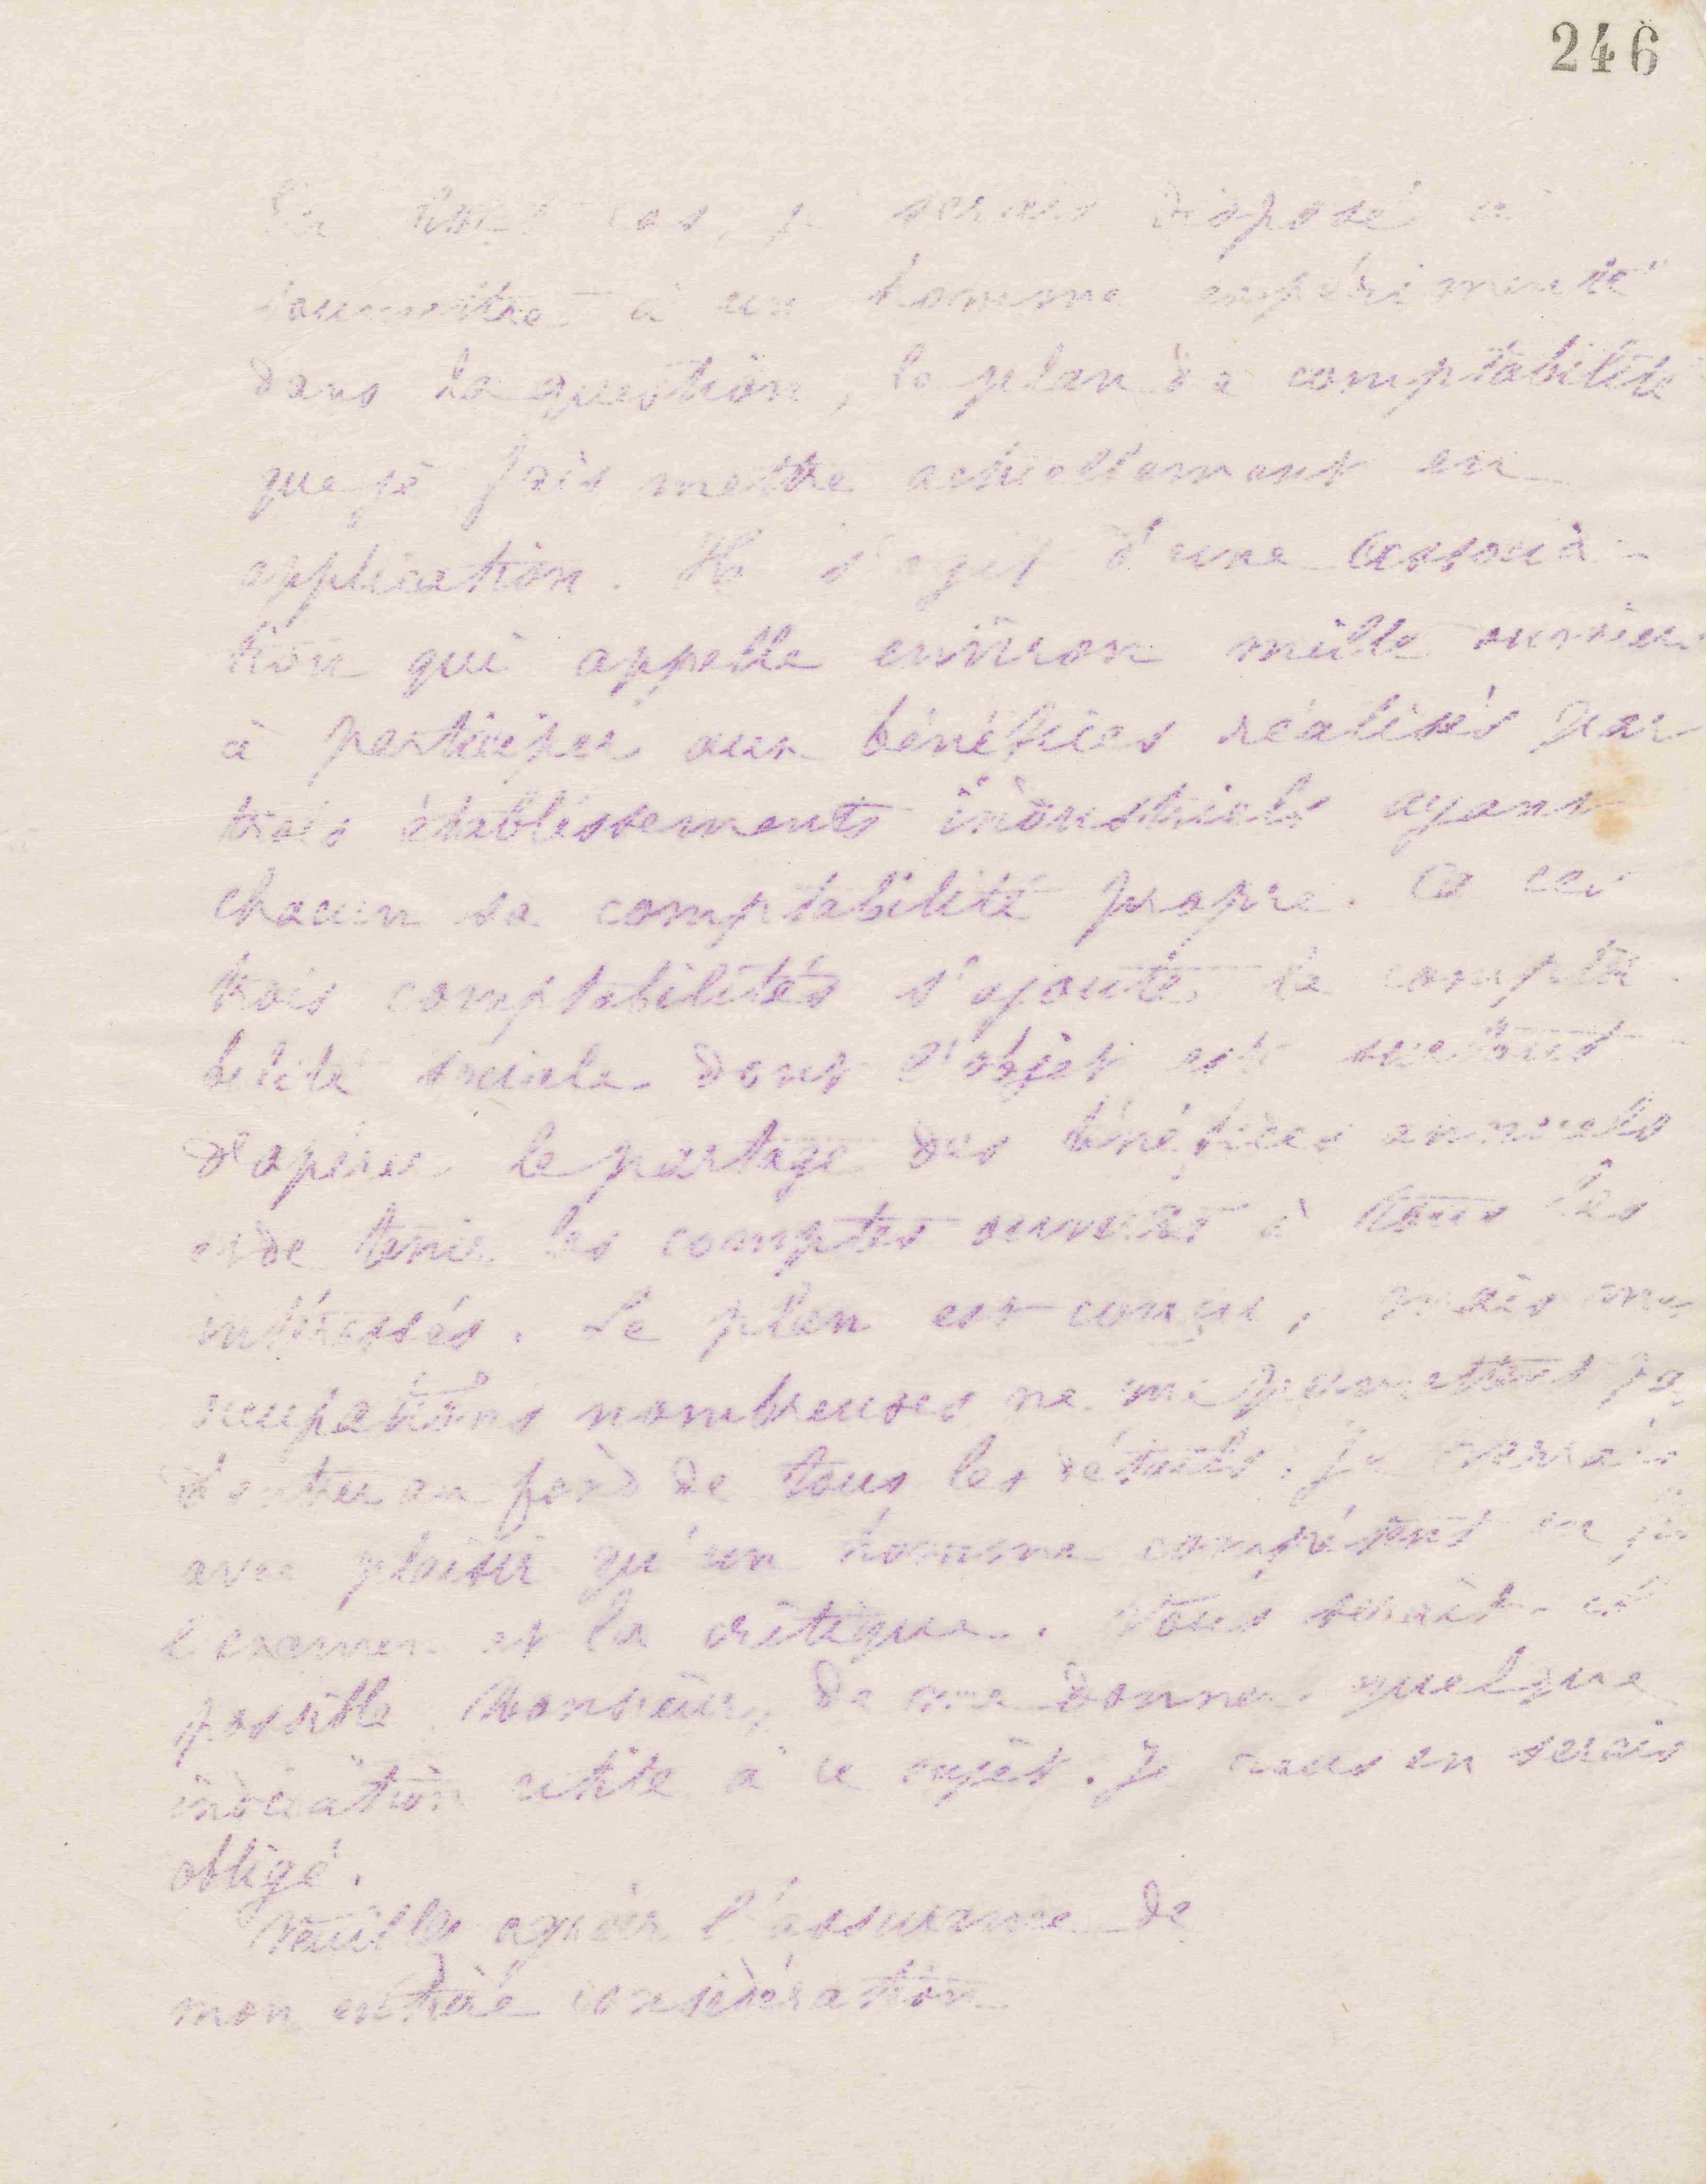 246
En tout cas, je serais disposé à
soumettre à un homme expérimenté
dans la question, le plan de comptabilité
que je fais mettre actuellement en
application. Il s'agit d'une associa-
tion qui appelle environ mille ouvriers
à participer aux bénéfices réalisés par
trois établissements industriels ayant
chacun sa comptabilité propre. A ces
trois comptabilités s'ajoute la compta-
bilité sociale dont l'objet est surtout
d'opérer le partage des bénéfices annuels
et de tenir les comptes ouverts à tous les
intéressés. Le plan est conçu, mais mes
occupations nombreuses ne me permettent pas
d'entrer au fond de tous les détails. Je verrais
avec plaisir qu'un homme compétent en fit
l'examen et la critique. Vous serait-il
possible, Monsieur, de me donner quelque
indication utile à ce sujet. Je vous en serais
obligé.
Veuillez agréer l'assurance de
mon entière considération